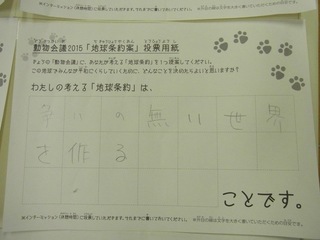 動物会議2015「地球条約案」投票用紙
きょうの「動物会議」に、あなたが考える「地球条約」を1つ提案してください。
この地球でみんなが平和にくらしていくために、どんなことを決めたらよいと思いますか?
わたしの考える「地球条約」は、
争いの無い世界
を作る
。
ことです。